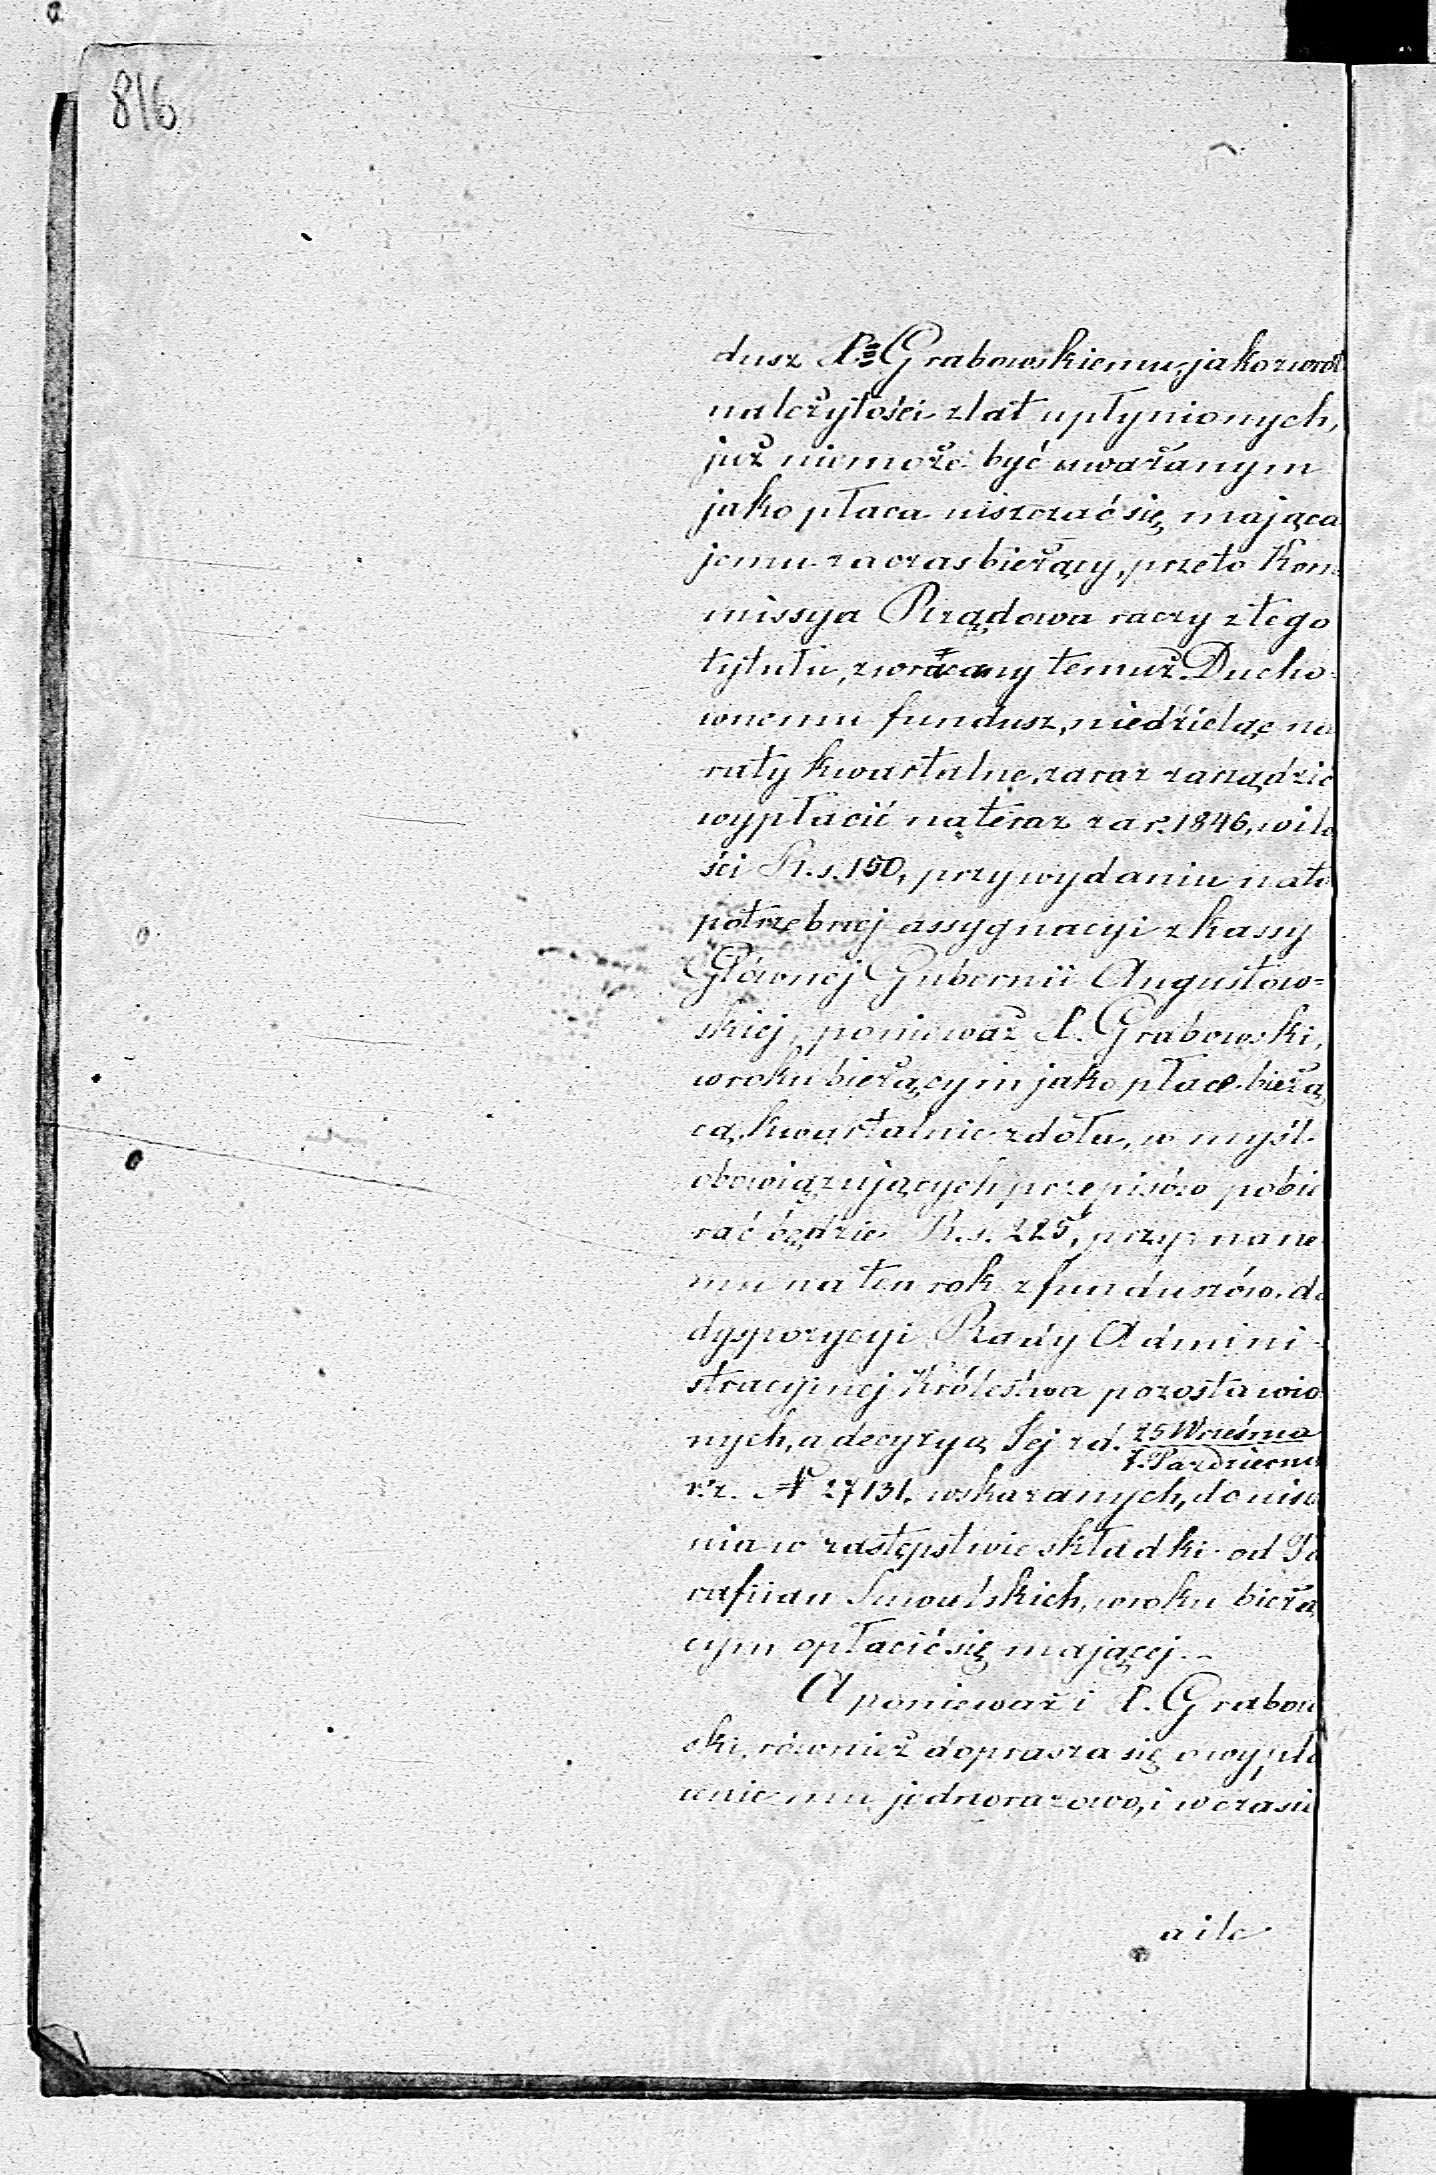 816
dusz P. Grabowskiemu, jako zwrot
należytości z lat upłynionych,
już niemoże być uważanym
jako płaca uiszczać się mająca
jemu za czas bieżący, przeto Kom=
missya Rządowa raczy z tego
tytułu, zwracany temuż Ducho=
wnemu fundusz, niedzieląc na
raty kwartalne, zaraz zarządzić
wypłacić na teraz za r. 1846, w ilo
ści R.s. 150, przy wydaniu na to
potrzebnej assygnacyi z kassy
Głównej Gubernii Augustow=
skiej, ponieważ P. Grabowski,
w roku bieżącym jako płacę bieżą
cą, kwartalnie z dołu, w myśl
obowiązujących przepisów pobie
rać będzie R.s. 225, przyznane
mu na ten rok z funduszów do
dyspozycyi Rady Admini=
stracyjnej Królestwa pozostawio
nych, a decyzyą Jej z d. 25 Września
7. Października
r. z. N 27131. wskazanych, do
nia w zastępstwie składki od Pa
rafian Suwalskich, w roku bieżą
cym opłacić się mającej.
A ponieważ i P. Grabow
ski, również doprasza się o wypła
cenie mu jednorazowo, i w czasie
a ile